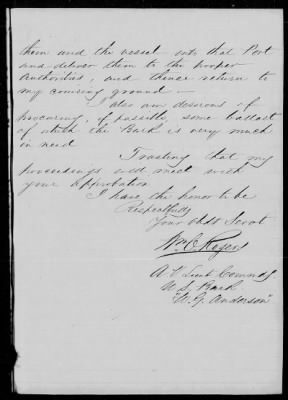 them and the vessel into that Port
and deliver them to the proper
Authorities, and thence return to
my cruising ground —
I also am desirous of
procuring, if possible, some ballast
of which the Bark is very much
in need
Trusting that my
proceedings will meet with
your approbation
I have the honor to be
Respectfully
Your Obdt Servt
Wm C Rogers
A V Lieut Commdg
U S Bark
"W. G. Anderson"